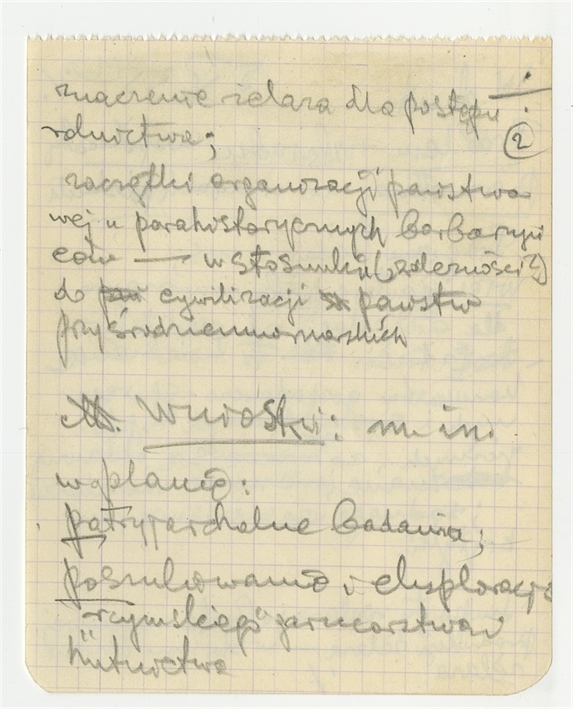 znaczenie żelaza dla postępu
2
rolnictwa;
zaczątki organizacji państwo
wej u parahistorycznych barbarzyń
ców — w stosunku (zależności?)
do cywilizacji państw
przyśródziemnomorskich
Wnioski: m. in.
w planie:
badania;
poszukiwania i eksploracje
"rzymskiego" garncarstwa i
hutnictwa